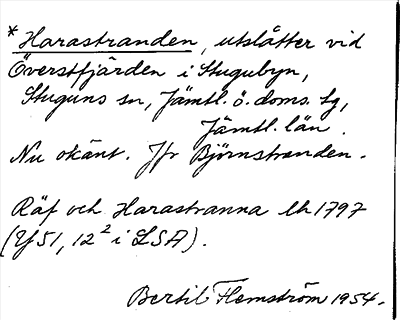 * Harastranden, utslåtter vid
Överstfjärden i Stugubyn,
Stuguns sn, Jämtl. ö. doms. tg,
Jämtl. län.
Nu okänt. Jfr Björnstranden.
Räf och Harastranna lh 1797
(Y 51, 12² i LSA).
Bertil Flemström 1954.